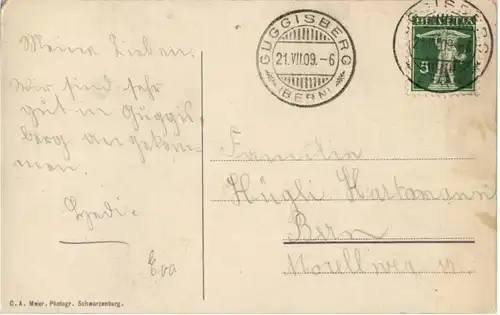 Meine Lieben.
Wir sind sehr
gut in Guggis-
berg angekom-
men.
GUGGISBERG
21.VII.09.-6
(BERN)
HELVETIA
5
Familie
Hügli Hartmann
Bern
Morellweg
C. A. Meier, Photogr. Schwarzenburg.